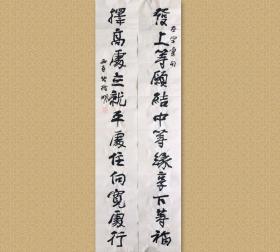 發上等願結中等緣享下等福
擇高處立就平處住向寬處行